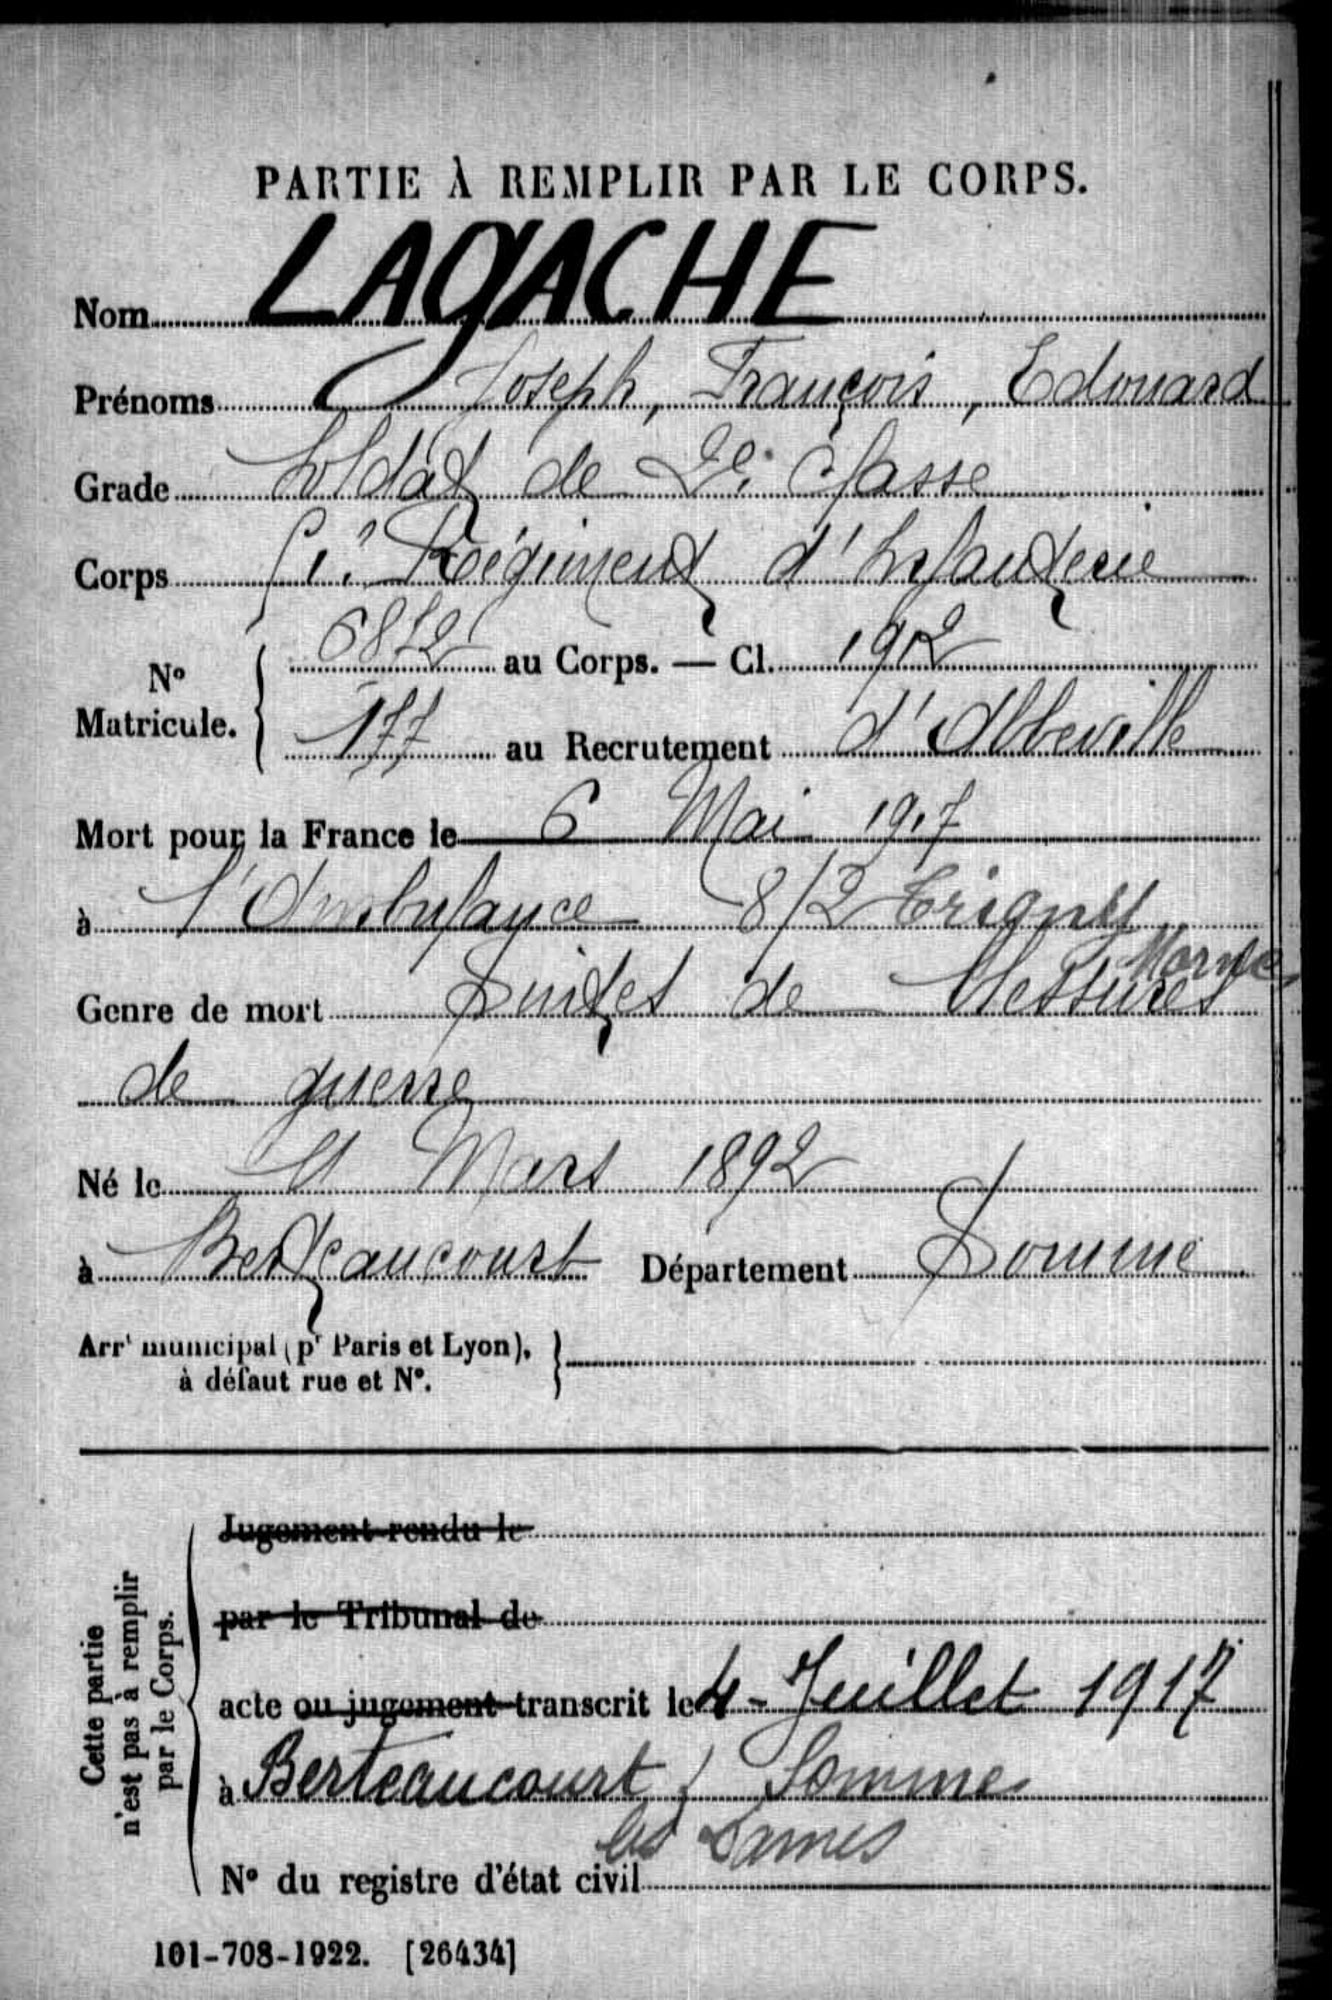 PARTIE À REMPLIR PAR LE CORPS.
Nom LAGACHE
Prénoms Joseph, François, Edouard
Grade Soldat de 2e Classe
Corps Régiment d'Infanterie
No Matricule. 6872 au Corps. — Cl. 1912
177 au Recrutement d'Abbeville
Mort pour la France le 6 Mai 1917
à l'Ambulance 8/2 Trigny
Marne
Genre de mort Suites de blessures
de guerre
Né le Mars 1892
à Berteaucourt Département Somme
Arrt municipal (pr Paris et Lyon),
à défaut rue et No.
Cette partie
n'est pas à remplir
par le Corps.
Jugement rendu le
par le Tribunal de
acte ou jugement transcrit le 4 - Juillet 1917
à Berteaucourt Somme
les Dames
No du registre d'état civil
101-708-1922. [26434]